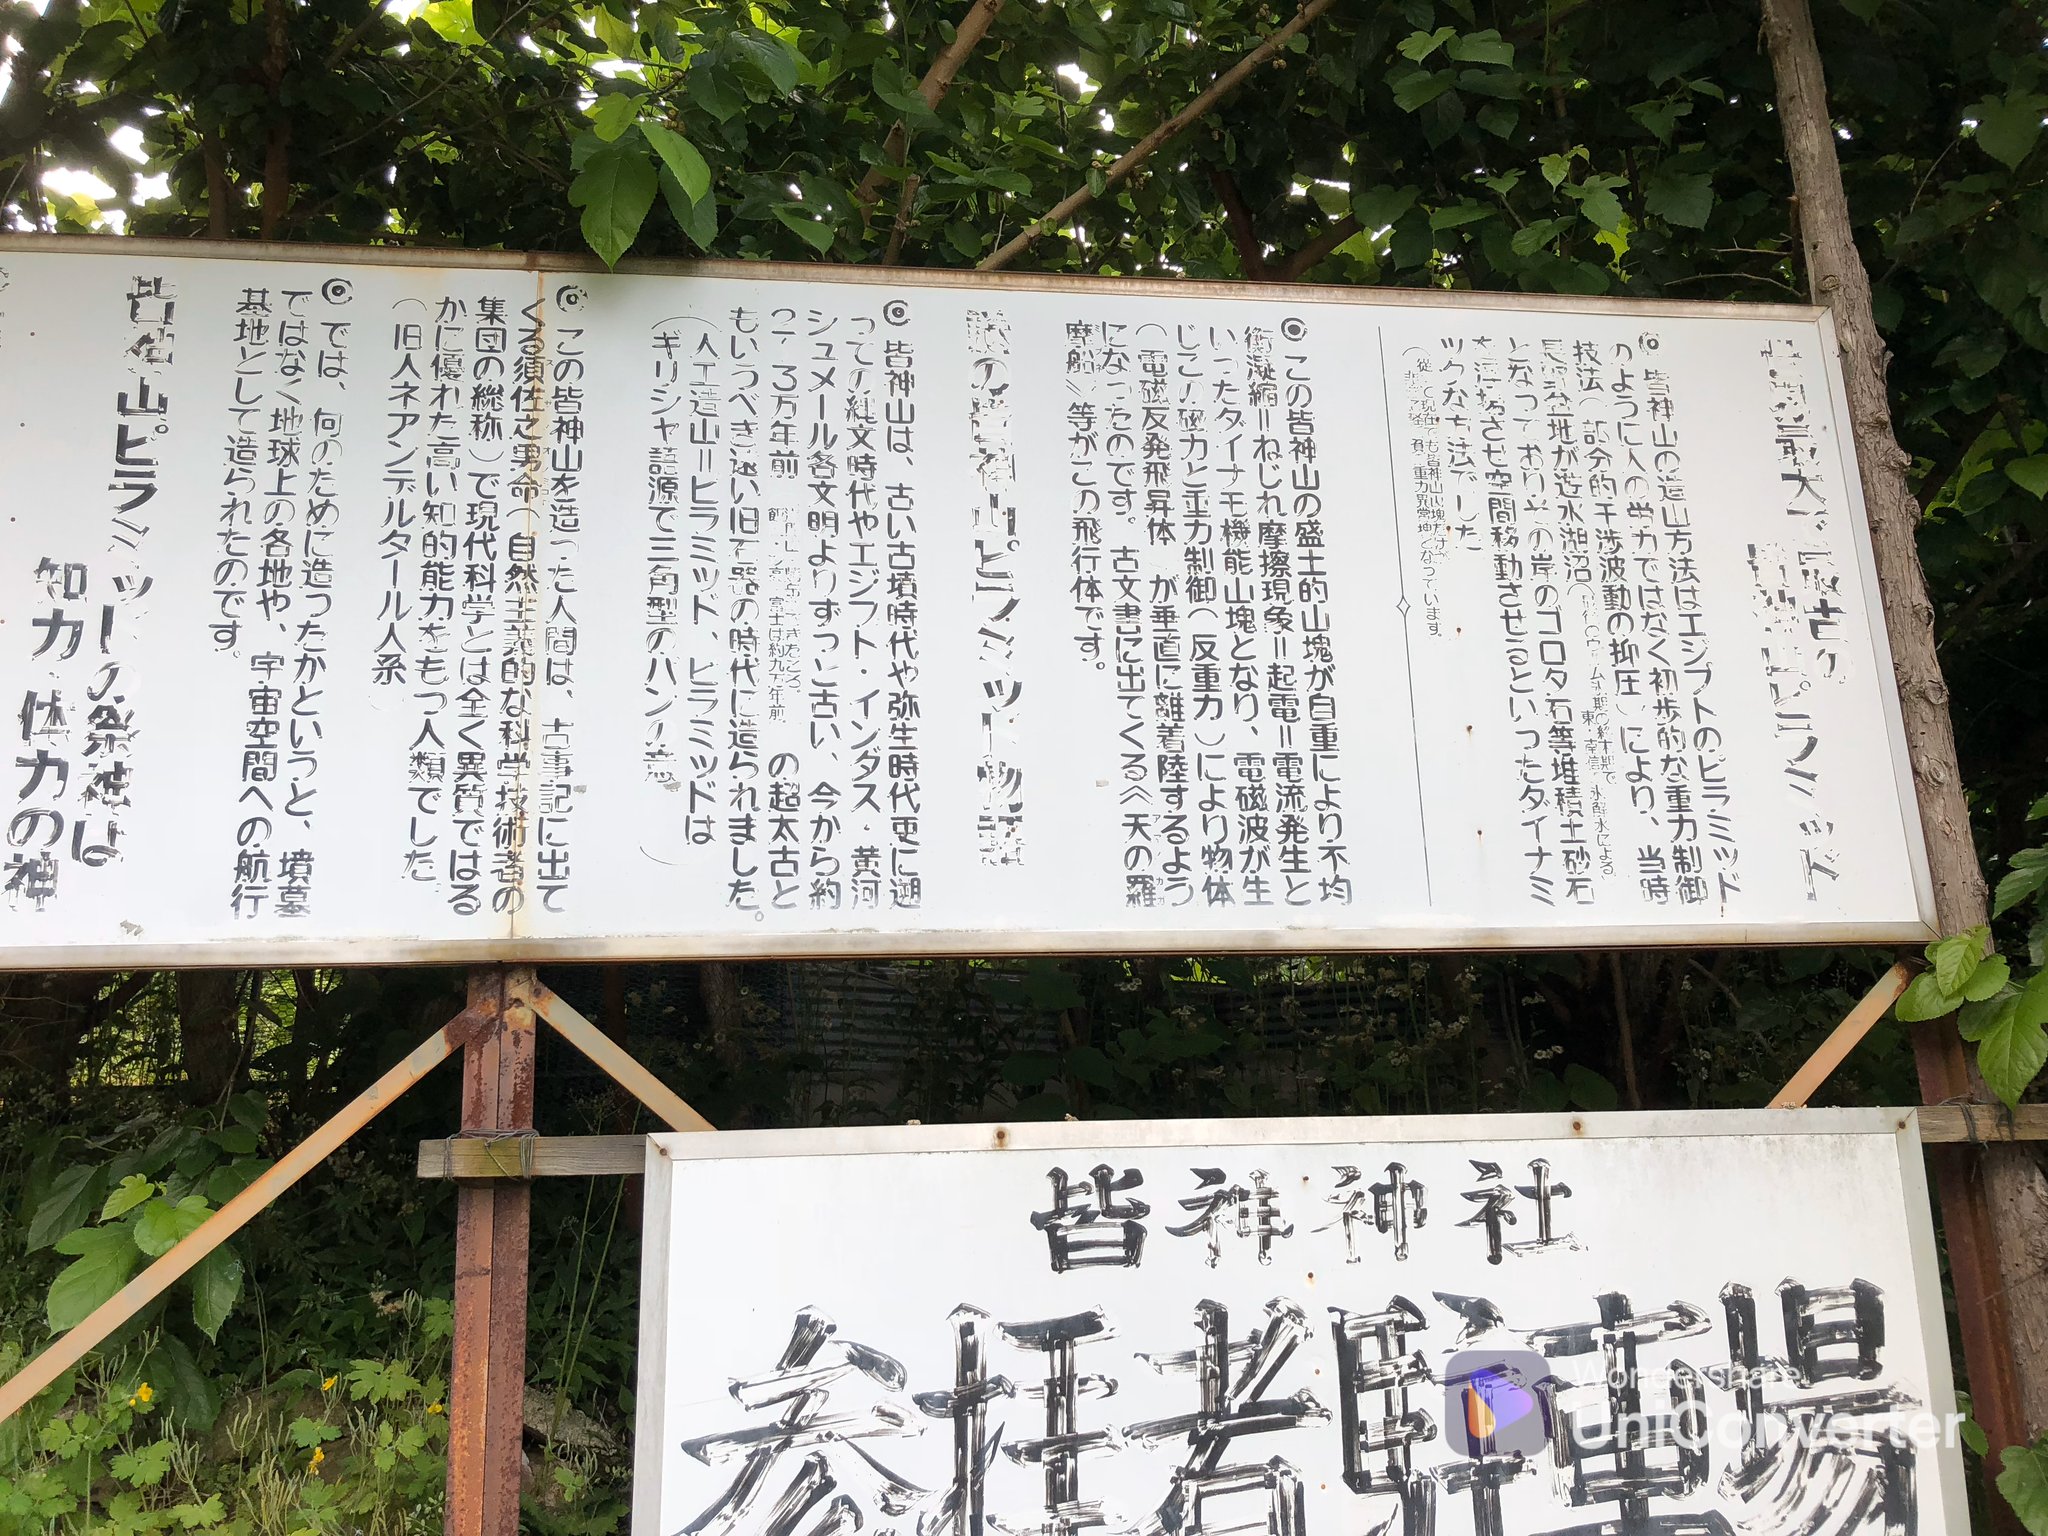 世界最大で最古の
皆神山ピラミッド
◎皆神山の造山方法はエジプトのピラミッド
のように人の労力ではなく初歩的な重力制御
技法(部分的干渉波動の抑圧)により、当時
長野盆地が遊水湖沼
となっておりその岸のゴロタ石等堆積土砂石
を浮揚させ空間移動させるといったダイナミ
ックな方法でした
(従って現在でも皆神山山塊だけが
非常に軽く、負の重力異常地となっています。
◎この皆神山の盛土的山塊が自重により不均
衡凝縮=ねじれ摩擦現象=起電=電流発生と
いったダイナモ機能山塊となり、電磁波が生
じこの磁力と重力制御(反重力)により物体
(電磁反発飛昇体)が垂直に離着陸するよう
になったのです。古文書に出てくる〈天の羅
摩船〉等がこの飛行体です。
謎の皆神山ピラミッド物語
◎皆神山は、古い古墳時代や弥生時代更に遡
っての縄文時代やエジプト・インダス・黄河
シュメール各文明よりずっと古い、今から約
2~3万年前 の超太古と
富士は約九万年前
もいうべき遠い旧石器の時代に造られました。
(人工造山=ピラミッド、ピラミッドは
ギリシャ語源で三角型のパンの意)
◎この皆神山を造った人間は、古事記に出て
くる須佐之男命(自然主義的な科学技術者の
集団の総称)で現代科学とは全く異質ではる
かに優れた高い知的能力をもつ人類でした
(旧人ネアンデルタール人系)
◎では、何のために造ったかというと、墳墓
ではなく地球上の各地や、宇宙空間への航行
基地として造られたのです。
皆神山ピラミッドの祭神は
知力・体力の神
皆神神社
参拝者駐車場
Wondershare
UniConverter